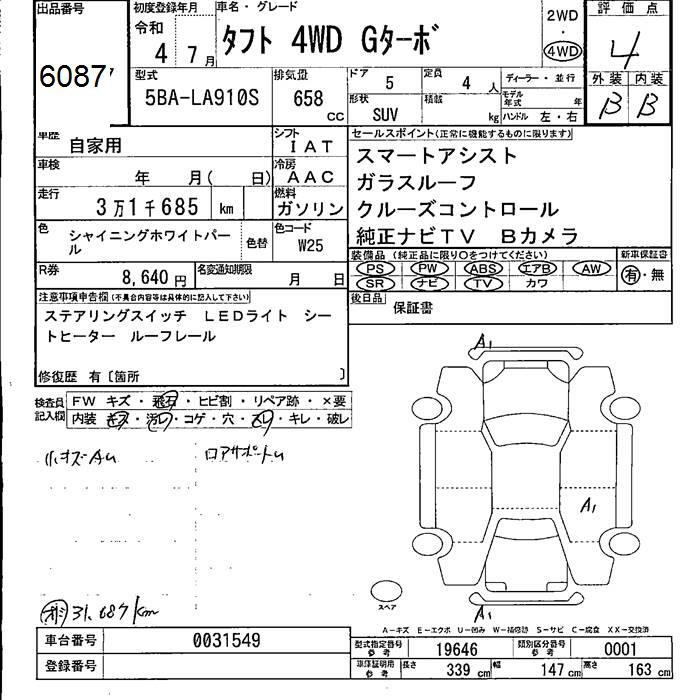 出品番号
6087
初度登録年月
令和
4 7月
車名・グレード
タフト 4WD Gターボ
2WD
・
4WD
評価点
4
外装 内装
B B
型式
5BA-LA910S
排気量
658 cc
ドア 5
定員 4 人
形状 SUV
積載 kg
ディーラー・並行
モデル年式 年
ハンドル 左・右
車歴 自家用
シフト IAT
車検 年 月( 日)
冷房 AAC
走行 3万1千685 km
燃料 ガソリン
色 シャイニングホワイトパール
色替
色コード W25
R券 8,640 円
名変通知期限 月 日
セールスポイント(正常に機能するものに限ります)
スマートアシスト
ガラスルーフ
クルーズコントロール
純正ナビTV Bカメラ
装備品 (純正品に限り○をつけてください)
PS PW ABS エアB AW
SR ナビ TV カワ
新車保証書
有・無
後日品 保証書
注意事項申告欄(不具合内容等は具体的に記入して下さい)
ステアリングスイッチ LEDライト シー
トヒーター ルーフレール
修復歴 有〔箇所 〕
検査員記入欄
FW キズ・飛石・ヒビ割・リペア跡・×要
内装 キズ・汚レ・コゲ・穴・スレ・キレ・破レ
小キズAU
ロアサポートU
31,687km
A1
A1
A1
スペア
A-キズ E-エクボ U-凹み W-補修跡 S-サビ C-腐食 XX-交換済
車台番号 0031549
登録番号
型式指定番号 参考 19646
類別区分番号 参考 0001
車庫証明用 参考 長さ 339 cm 幅 147 cm 高さ 163 cm